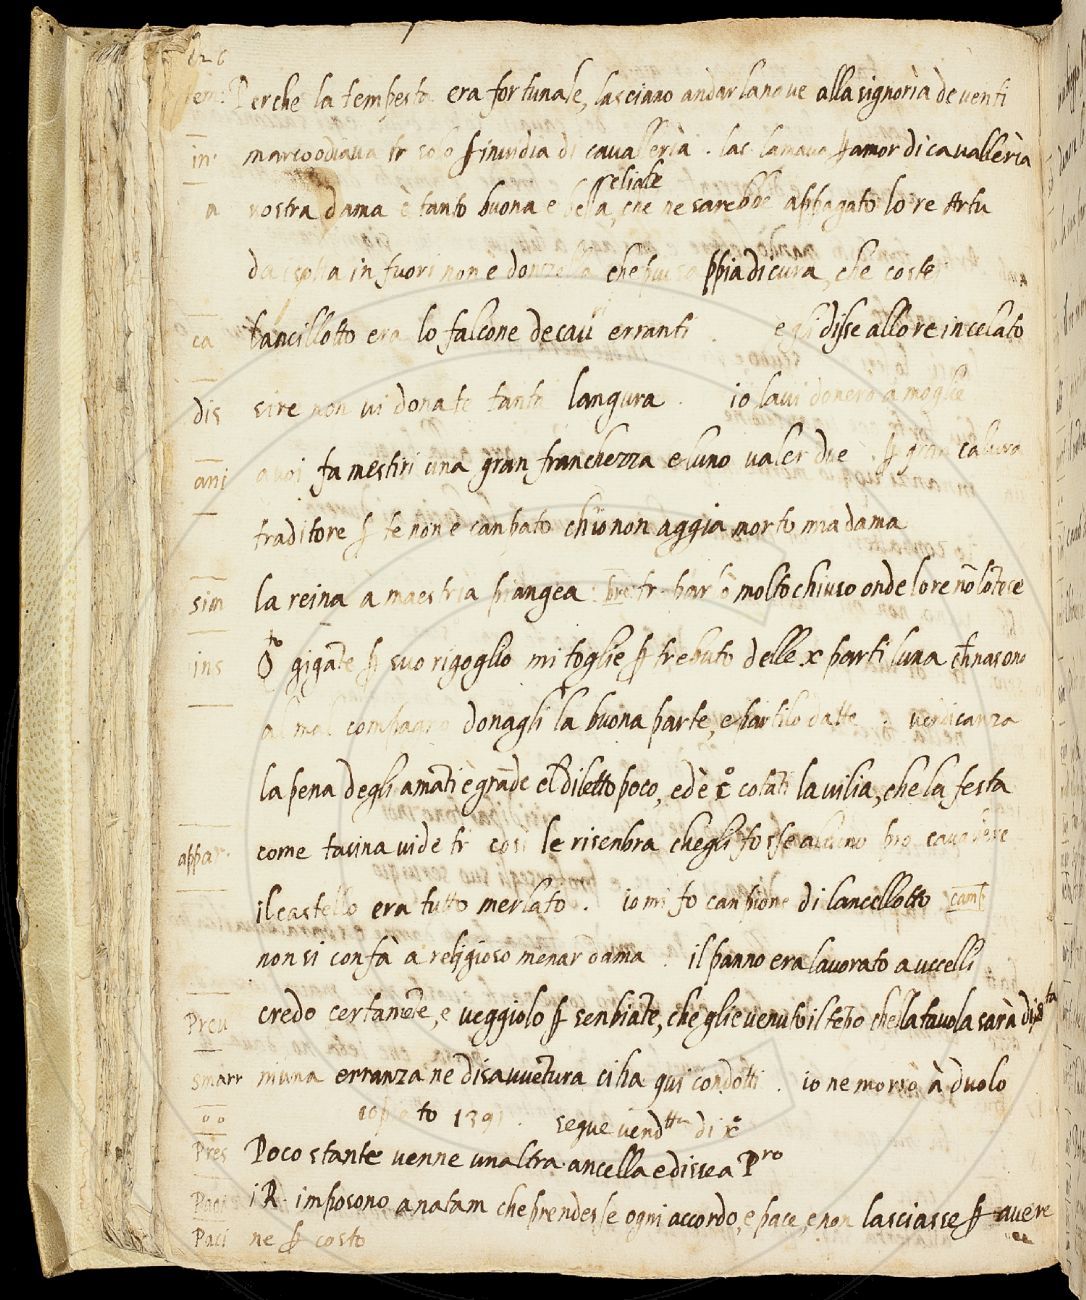 126
Perche la tempesta era fortunale, lasciano andar lanave alla signoria de venti
in marcoodiava tr solo ꝑ invidia di cavalleria . lac lamava ꝑ amor di cavalleria
seliate
a vostra dama e tanto buona e bella, che ne sarebbe appagato lo re Artu
da isotta in fuori non e donzella che piu sa ppia di cura, che costei
ca lancillotto era lo falcone de cav erranti . egli disse allo re in celato
dis sire non vi donate tanta langura . io lavi donero a moglie
ani a voi fa mestiri una gran franchezza e luno valer due . ꝑ gran calura
traditore ꝑ te non e canpato chi non aggia morto mia dama
sim la reina a maestria piangea tr parlo molto chiuso onde lo re nō lōtese
ins gigāte ꝑ suo rigoglio mi toglie ꝑ trebuto delle x parti luna che nasono
al mal compagno donagli la buona parte, e partilo datte . vendicanza
la pena degli amāti è grāde el diletto poco, ed è cotāti la vilia, che la festa
appar come tavina vide tr cosi le risenbra chegli fosse alcuno pro cavaliere
il castello era tutto merlato . io mi fo canpione di lancellotto camp
non si confà a religioso menar dama . il panno era lavorato a uccelli
Prev credo certamēte, e veggiolo ꝑ senbiāte, che glie venuto il tēpo chella tavola sarà
smarr niuna erranza ne disavvētura ci ha qui condotti . io ne morrò à duolo
to 1391 . segue vendtta di
Pres Poco stante venne unaltra ancella e disse a Pro
Paos i R. imposono a natam che prendesse ogni accordo, e pace, e non lasciasse ꝑ avere
Paci ne ꝑ costo